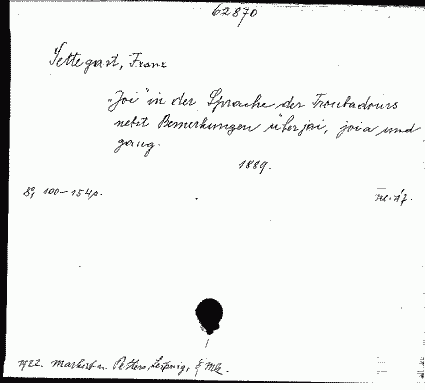 62870
Settegast, Franz
"Joi" in der Sprache der Troubadours
nebst Bemerkungen über jai, joia und
gaug.
1889.
8°, 100-154 p.
1922. Markert u. Petters, Leipzig,